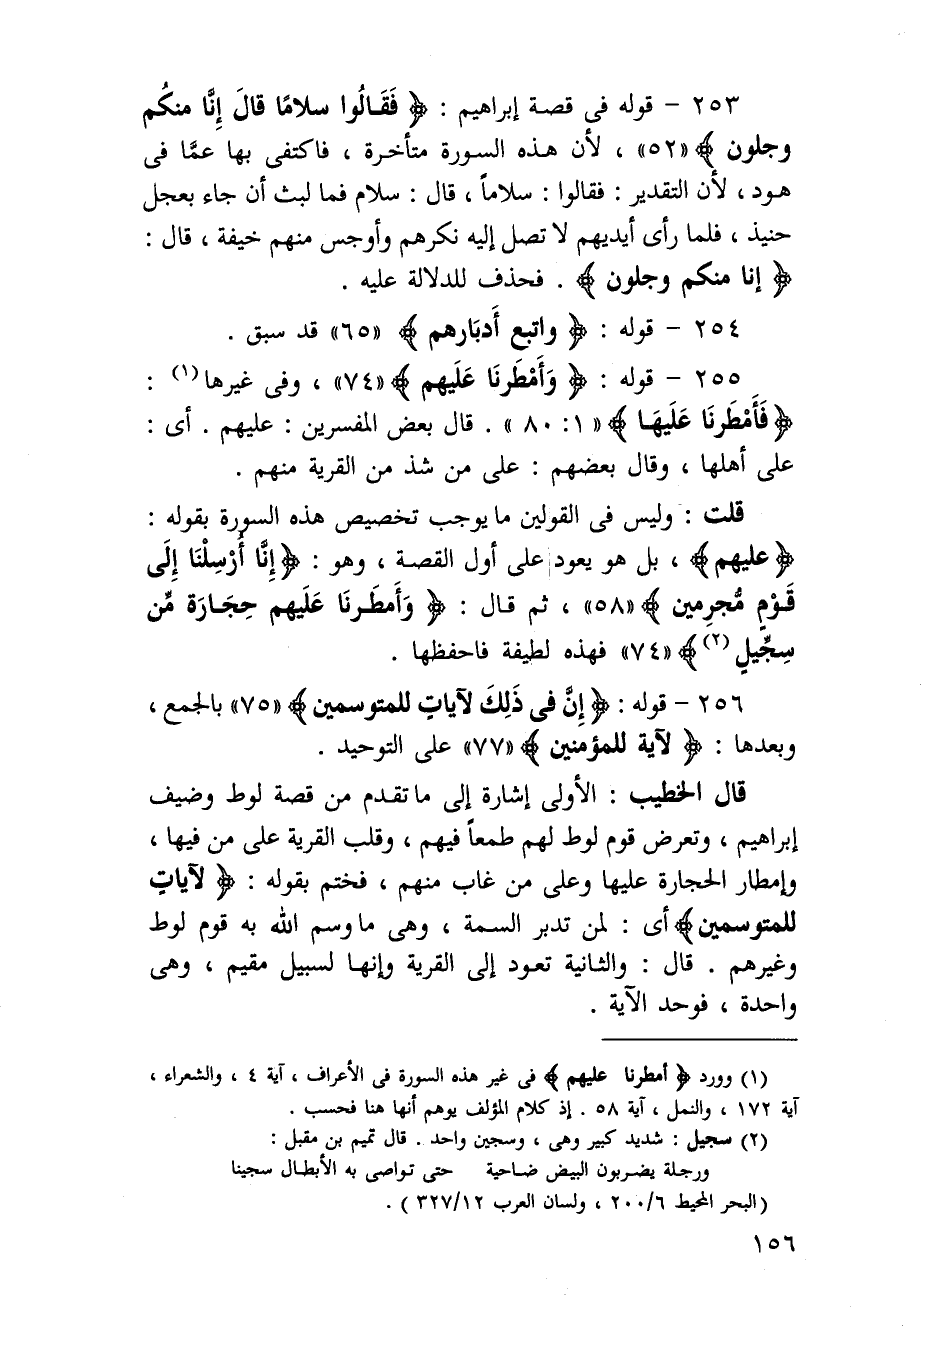 ٢٥٣ – قوله فى قصة إبراهيم : ﴿ فَقَـالُوا سلامًا قالَ إِنَّا منكُم
وجلون ﴾ «٥٢» ، لأن هـذه السـورة متأخـرة ، فاكتفى بها عمَّا فى
هـود ، لأن التقدير : فقالوا : سلاماً ، قال : سلام فما لبث أن جاء بعجل
حنيذ ، فلما رأى أيديهم لا تصل إليه نكرهم وأوجس منهم خيفة ، قال :
﴿ إنا منكم وجلون ﴾ . فحذف للدلالة عليه .
٢٥٤ – قوله : ﴿ واتبع أَدبَارهم ﴾ «٦٥» قد سبق .
٢٥٥ – قوله : ﴿ وَأَمْطَرنَا عَلَيهم ﴾ «٧٤» ، وفى غيرها(١) :
﴿ فَأَمْطَرنَا عَلَيهَـا ﴾ «١: ٨٠» . قال بعض المفسرين : عليهم . أى :
على أهلها ، وقال بعضهم : على من شذ من القرية منهم .
قلت : وليس فى القولين ما يوجب تخصيص هذه السورة بقوله :
﴿عليهم﴾ ، بل هو يعود على أول القصـة ، وهو : ﴿إِنَّا أُرْسِلْنَا إِلَى
قَـوْمٍ مُّجرِمين ﴾ «٥٨» ، ثم قـال : ﴿ وَأَمطَـرنَا عَلَيهم حِجَـارَة مِّن
سِجِّيلٍ(٢)﴾ «٧٤» فهذه لطيفة فاحفظها .
٢٥٦ – قوله : ﴿إنَّ فى ذَلِكَ لآياتٍ للمتوسمين﴾ «٧٥» بالجمع ،
وبعدها : ﴿ لآية للمؤمنين ﴾ «٧٧» على التوحيد .
قال الخطيب : الأولى إشارة إلى ما تقـدم من قصة لوط وضيف
إبراهيم ، وتعرض قوم لوط لهم طمعاً فيهم ، وقلب القرية على من فيها ،
وإمطار الحجارة عليها وعلى من غاب منهم ، فختم بقوله : ﴿ لآياتٍ
للمتوسمين﴾ أى : لمن تدبر السـمة ، وهى ما وسم الله به قوم لوط
وغيرهم . قال : والثانية تعود إلى القرية وإنهـا لسبيل مقيم ، وهى
واحدة ، فوحد الآية .
(١) وورد ﴿ أمطرنا عليهم ﴾ فى غير هذه السورة فى الأعراف ، آية ٤ ، والشعراء ،
آية ١٧٢ ، والنمل ، آية ٥٨ . إذ كلام المؤلف يوهم أنها هنا فحسب .
(٢) سجيل : شديد كبير وهى ، وسجين واحد . قال تميم بن مقبل :
ورجلة يضـربون البيض ضـاحية حتى تـواصى به الأبطـال سجينا
(البحر المحيط ٦/٢٠٠ ، ولسان العرب ١٢/٣٢٧ ) .
١٥٦